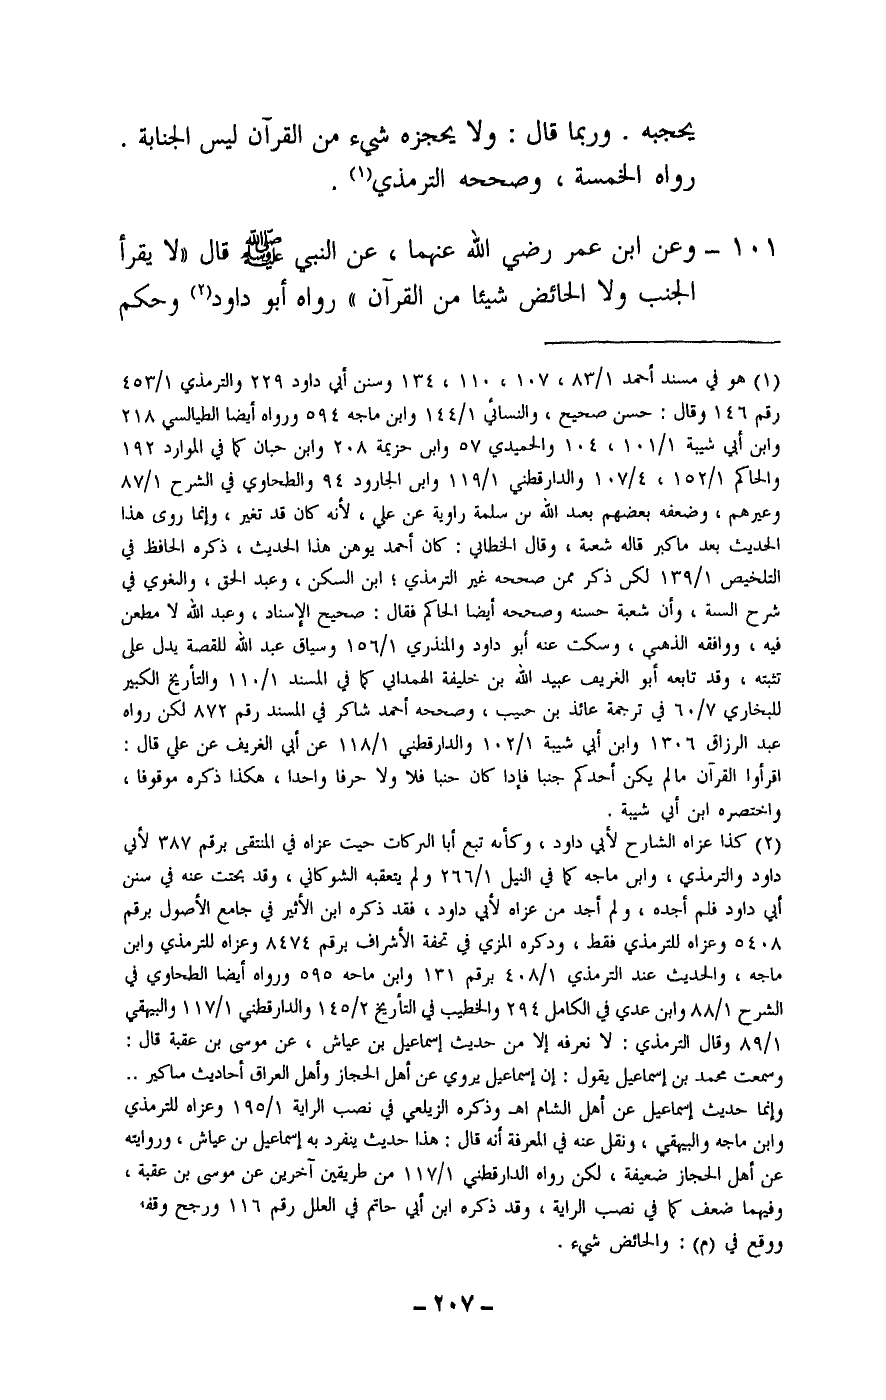 يحجبه . وربما قال : ولا يحجزه شيء من القرآن ليس الجنابة .
رواه الخمسة ، وصححه الترمذي(١) .
١٠١ – وعن ابن عمر رضي الله عنهما ، عن النبي ﷺ قال «لا يقرأ
الجنب ولا الحائض شيئا من القرآن » رواه أبو داود(٢) وحكم
(١) هو في مسند أحمد ٨٣/١ ، ١٠٧ ، ١١٠ ، ١٣٤ وسنن أبي داود ٢٢٩ والترمذي ٤٥٣/١
رقم ١٤٦ وقال : حسن صحيح ، والنسائي ١٤٤/١ وابن ماجه ٥٩٤ ورواه أيضا الطيالسي ٢١٨
وابن أبي شيبة ١٠١/١ ، ١٠٤ والحميدي ٥٧ وابن خزيمة ٢٠٨ وابن حبان كما في الموارد ١٩٢
والحاكم ١٥٢/١ ، ١٠٧/٤ والدارقطني ١١٩/١ وابن الجارود ٩٤ والطحاوي في الشرح ٨٧/١
وغيرهم ، وضعفه بعضهم بعبد الله بن سلمة راوية عن علي ، لأنه كان قد تغير ، وإنما روى هذا
الحديث بعد ماكبر قاله شعبة ، وقال الخطابي : كان أحمد يوهن هذا الحديث ، ذكره الحافظ في
التلخيص ١٣٩/١ لكن ذكر ممن صححه غير الترمذي ؛ ابن السكن ، وعبد الحق ، والبغوي في
شرح السنة ، وأن شعبة حسنه وصححه أيضا الحاكم فقال : صحيح الإسناد ، وعبد الله لا مطعن
فيه ، ووافقه الذهبي ، وسكت عنه أبو داود والمنذري ١٥٦/١ وسياق عبد الله للقصة يدل على
تثبته ، وقد تابعه أبو الغريف عبيد الله بن خليفة الهمداني كما في المسند ١١٠/١ والتأريخ الكبير
للبخاري ٦٠/٧ في ترجمة عائذ بن حبيب ، وصححه أحمد شاكر في المسند رقم ٨٧٢ لكن رواه
عبد الرزاق ١٣٠٦ وابن أبي شيبة ١٠٢/١ والدارقطني ١١٨/١ عن أبي الغريف عن علي قال :
اقرأوا القرآن مالم يكن أحدكم جنبا فإذا كان جنبا فلا ولا حرفا واحدا ، هكذا ذكره موقوفا ،
واختصره ابن أبي شيبة .
(٢) كذا عزاه الشارح لأبي داود ، وكأنه تبع أبا البركات حيث عزاه في المنتقى برقم ٣٨٧ لأبي
داود والترمذي ، وابن ماجه كما في النيل ٢٦٦/١ ولم يتعقبه الشوكاني ، وقد بحثت عنه في سنن
أبي داود فلم أجده ، ولم أجد من عزاه لأبي داود ، فقد ذكره ابن الأثير في جامع الأصول برقم
٥٤٠٨ وعزاه للترمذي فقط ، وذكره المزي في تحفة الأشراف برقم ٨٤٧٤ وعزاه للترمذي وابن
ماجه ، والحديث عند الترمذي ٤٠٨/١ برقم ١٣١ وابن ماجه ٥٩٥ ورواه أيضا الطحاوي في
الشرح ٨٨/١ وابن عدي في الكامل ٢٩٤ والخطيب في التأريخ ١٤٥/٢ والدارقطني ١١٧/١ والبيهقي
٨٩/١ وقال الترمذي : لا نعرفه إلا من حديث إسماعيل بن عياش ، عن موسى بن عقبة قال :
وسمعت محمد بن إسماعيل يقول : إن إسماعيل يروي عن أهل الحجاز وأهل العراق أحاديث مناكير ..
وإنما حديث إسماعيل عن أهل الشام اهـ وذكره الزيلعي في نصب الراية ١٩٥/١ وعزاه للترمذي
وابن ماجه والبيهقي ، ونقل عنه في المعرفة أنه قال : هذا حديث ينفرد به إسماعيل بن عياش ، وروايته
عن أهل الحجاز ضعيفة ، لكن رواه الدارقطني ١١٧/١ من طريقين آخرين عن موسى بن عقبة ،
وفيهما ضعف كما في نصب الراية ، وقد ذكره ابن أبي حاتم في العلل رقم ١١٦ ورجح وقفه
ووقع في (م) : والحائض شيء .
– ٢٠٧ –